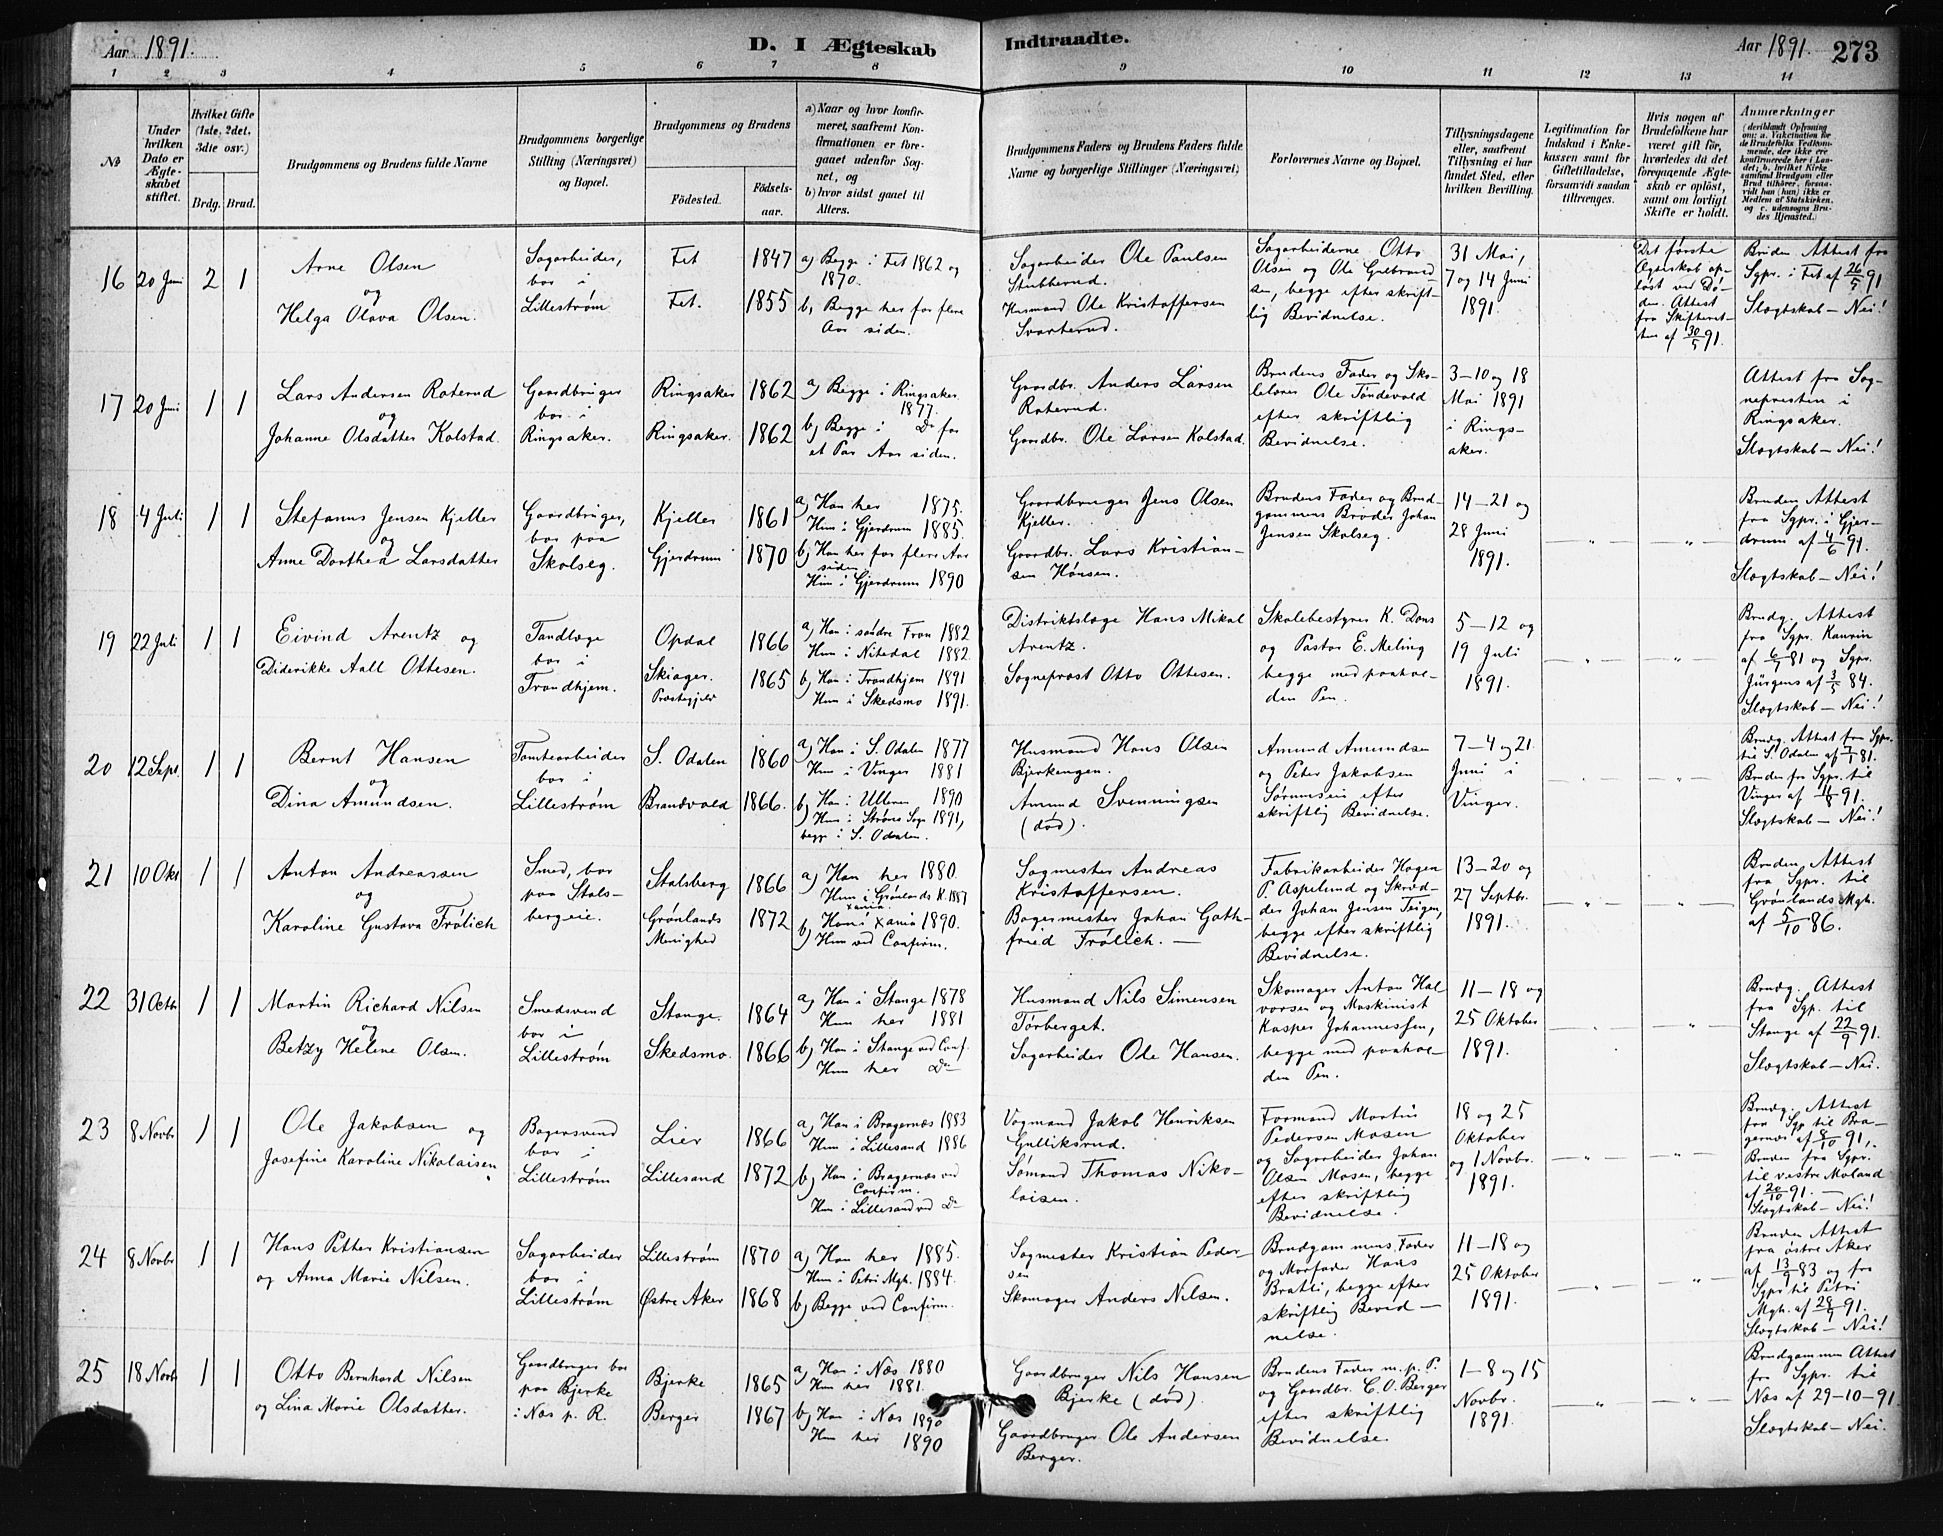 Aar 1891.
D. I Ægteskab
Indtraadte.
Aar 1891. 273
1 2 3 4 5 6 7 8 9 10 11 12 13 14
No
Under
hvilken
Dato er
Ægte-
skabet
stiftet.
Hvilket Gifte
(1ste, 2det,
3die osv.)
Brdg. Brud.
Brudgommens og Brudens fulde Navne
Brudgommens borgerlige
Stilling (Næringsvei)
og Bopæl.
Brudgommens og Brudens
Födested.
Födsels-
aar.
a) Naar og hvor konfir-
meret, saafremt Kon-
firmationen er fore-
gaaet udenfor Sog-
net, og
b) hvor sidst gaaet til
Alters.
Brudgommens Faders og Brudens Faders fulde
Navne og borgerlige Stillinger (Næringsvei)
Forlovernes Navne og Bopæl.
Tillysningsdagene
eller, saafremt
Tillysning ei har
fundet Sted, efter
hvilken Bevilling.
Legitimation for
Indskud i Enke-
kassen samt for
Giftetilladelse,
forsaavidt saadan
tiltrænges.
Hvis nogen af
Brudefolkene har
været gift för,
hvorledes da det
foregaaende Ægte-
skab er oplöst,
samt om lovligt
Skifte er holdt.
Anmærkninger
(deriblandt Oplysning
om: a. Vakcination for
de Brudefolks Vedkom-
mende, der ikke ere
konfirmerede her i Lan-
det; b. hvilket Kirke-
samfund Brudgom eller
Brud tilhörer, forsaa-
vidt han (hun) ikke er
Medlem af Statskirken,
og c. udensogns Bru-
des Hjemsted.)
16 20 Juni 2 1
Arne Olsen
og
Helga Olava Olsen.
Sagarbeider,
bor i
Lillestrøm
Fet 1847
Fet. 1855
a) Begge i Fet 1862 og
1870.
b) Begge her for flere
Aar siden.
Sagarbeider Ole Paulsen
Stubberud.
Husmand Ole Kristoffersen
Svarterud.
Sagarbeiderne Otto
Olsen og Ole Gulbrand-
sen, begge efter skrift-
lig Bevidnelse.
31 Mai,
7 og 14 Juni
1891.
Det første
Ægteskab op-
løst ved Dø-
den. Attest
fra Skifteret-
ten af 30/5 91.
Bruden Attest fra
Sgpr. i Fet af 26/5 91
Slægtskab – Nei!
17 20 Juni 1 1
Lars Andersen Roterud
og
Johanne Olsdatter Kolstad.
Gaardbruger
bor i
Ringsaker.
Ringsaker 1862
Ringsaker. 1862
a) Begge i Ringsaker.
1877.
b) Begge i Do for
et Par Aar siden.
Gaardbr. Anders Larsen
Roterud.
Gaardbr. Ole Larsen Kolstad.
Brudens Fader og Sko-
lelærer Ole Tandevold
efter skriftlig
Bevidnelse.
3–10 og 18
Mai 1891
i Rings-
aker.
Attest fra Sog-
nepresten i
Ringsaker.
Slægtskab – Nei!
18 4 Juli 1 1
Stefanus Jensen Kjeller
og
Anne Dorthea Larsdatter
Gaardbruger,
bor paa
Skolseg.
Kjeller 1861
Gjerdrum 1870
a) Han her 1875.
Hun i Gjerdrum 1885.
b) Han her for flere Aar
siden
Hun i Gjerdrum 1890
Gaardbruger Jens Olsen
Kjeller.
Gaardbr. Lars Kristian-
sen Hønsen.
Brudens Fader og Brud-
gommens Broder Johan
Jensen Skolseg.
14–21 og
28 Juni
1891.
Bruden, Attest
fra Sgpr. i Gjer-
drum af 4/6 91.
Slægtskab – Nei!
19 22 Juli 1 1
Eivind Arentz og
Diderikke Aall Ottesen.
Tandlæge
bor i
Trondhjem.
Opdal 1866
Skiager. 1865
Præstegjeld
a) Han i søndre Fron 1882
Hun i Nitedal 1882.
b) Han i Trondhjem 1891
Hun i Skedsmo 1891.
Distriktslæge Hans Mikal
Arentz.
Sogneprost Otto Ottesen.
Skolebestyrer K. Dons
og Pastor E. Meling
begge med paahol-
den Pen.
5–12 og
19 Juli
1891.
Brudg. Attest
fra Sgpr. Kaurin
af 6/7 81 og Sgpr.
Jürgens af 3/5 84.
Slægtskab – Nei!
20 12 Sept. 1 1
Bernt Hansen
og
Dina Amundsen.
Tomtearbeider
bor i
Lillestrøm
S. Odalen 1860
Brandvold 1866.
a) Han i S. Odalen 1877
Hun i Vinger 1881
b) Han i Ulleren 1890
Hun i Strøms Sogn 1891,
begge i S. Odalen.
Husmand Hans Olsen
Bjerkengen.
Amund Svenningsen
(død).
Amund Amundsen
og Peter Jakobsen
Sørumseie efter
skriftlig Bevidnelse.
7–4 og 21
Juni i
Vinger.
Brudg. Attest fra Sgpr.
til S. Odalen af 7/1 81.
Bruden fra Sgpr. til
Vinger af 11/8 91.
Slægtskab – Nei!
21 10 Okt 1 1
Anton Andreassen
og
Karoline Gustava Frölich
Smed, bor
paa Stals-
bergeie.
Stalsberg 1866
Grønlands 1872
Menighed
a) Han her 1880.
Hun i Grønlands K. 1887
Xania.
b) Han i Xania 1890.
Hun ved Confirm.
Sagmester Andreas
Kristoffersen.
Bagermester Johan Goth-
fried Frölich. —
Fabrikarbeider Hagen
P. Asplund og Skræd-
der Johan Jensen Teigen,
begge efter skriftlig
Bevidnelse.
13–20 og
27 Septbr.
1891.
Bruden, Attest
fra Sgpr. til
Grønlands Mgh.
af 5/10 86.
22 31 Octbr 1 1
Martin Richard Nilsen
og
Betzy Helene Olsen.
Smedsvend
bor i
Lillestrøm
Stange. 1864
Skedsmo. 1866
a) Han i Stange 1878
Hun her 1881
b) Han i Stange ved Conf.
Hun her Do
Husmand Nils Simensen
Torberget.
Sagarbeider Ole Hansen.
Skomager Anton Hal
vorsen og Maskinist
Kasper Johannessen,
begge med paahol-
den Pen.
11–18 og
25 Oktober
1891.
Brudg. Attest
fra Sgpr. til
Stange af 22/9 91.
Slægtskab – Nei.
23 8 Novbr 1 1
Ole Jakobsen og
Josefine Karoline Nikolaisen
Bagersvend
bor i
Lillestrøm
Lier 1866
Lillesand 1872
a) Han i Bragernæs 1883
Hun i Lillesand 1886
b) Han i Bragernæs ved
Confirm.
Hun i Lillesand ved Do
Vognmand Jakob Henriksen
Gulliksrud.
Sømand Thomas Niko-
laisen.
Formand Martin
Pedersen Mosen
og Sagarbeider Johan
Olsen Mosen, begge
efter skriftlig
Bevidnelse.
18 og 25
Oktober
og 1 Novbr.
1891.
Brudg. Attest
fra Sgp til Bra-
gernæs af 8/10 91,
Bruden fra Sgpr.
til vestre Moland
af 20/10 91. —
Slægtskab – Nei!
24 8 Novbr 1 1
Hans Petter Kristiansen
og Anna Marie Nilsen.
Sagarbeider
bor i
Lillestrøm
Lillestrøm 1870
Østre Aker 1868
a) Han her 1885.
Hun i Petri Mgh. 1884.
b) Begge ved Confirm.
Sagmester Kristian Peder-
sen
Skomager Anders Nilsen.
Brudgommens Fader
og Morfader Hans
Bratli, begge efter
skriftlig Bevid—
nelse.
11–18 og
25 Oktober
1891.
Bruden Attest
fra østre Aker
af 13/9 83 og fra
Sgpr til Petri
Mgh. af 28/9 91.
Slægtskab – Nei!
25 18 Novbr 1 1
Otto Bernhard Nilsen
og Lina Marie Olsdatter.
Gaardbruger bor
paa Bjerke
i Næs p. R.
Bjerke 1865
Berger 1867
a) Han i Næs 1880
Hun her 1881.
b) Han i Næs 1890
Hun her 1890
Gaardbruger Nils Hansen
Bjerke (død).
Gaardbruger Ole Andersen
Berger.
Brudens Fader m. p. P.
og Gaardbr. C. O. Berger
efter skriftlig
Bevidnelse.
1–8 og 15
Novbr.
1891.
Brudgommen Attest
fr Sgpr. til
Næs af 29-10-91
Slægtskab – Nei.